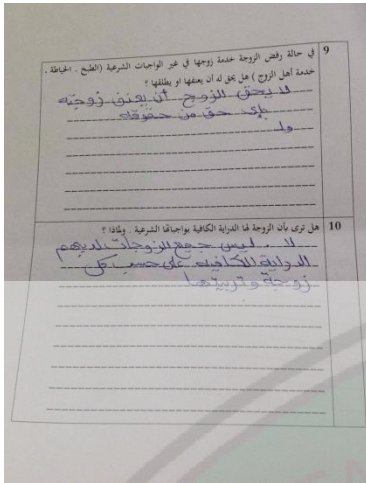 9 في حالة رفض الزوجة خدمة زوجها في غير الواجبات الشرعية (الطبخ . الخياطة .
خدمة أهل الزوج ) هل يحق له أن يعنفها او يطلقها ؟
لا يحق للزوج أن يعنف زوجته
حق من حقوقه
ولا
10 هل ترى بأن الزوجة لها الدراية الكافية بواجباتها الشرعية . ولماذا ؟
لا . ليس جميع الزوجات لديهم
الدراية الكافيه على حسب كل
زوجة وتربيتها